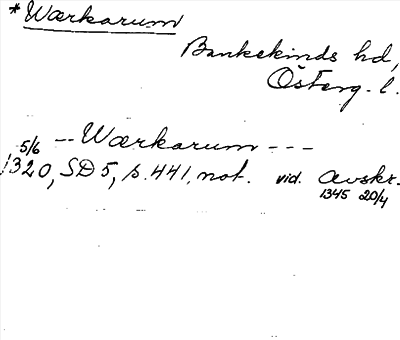 *Wærkarum
Bankekinds hd,
Österg. l.
-- Wærkarum ---
5/6
1320, SD5, s. 441, not. vid. Avskr.
1345 20/4